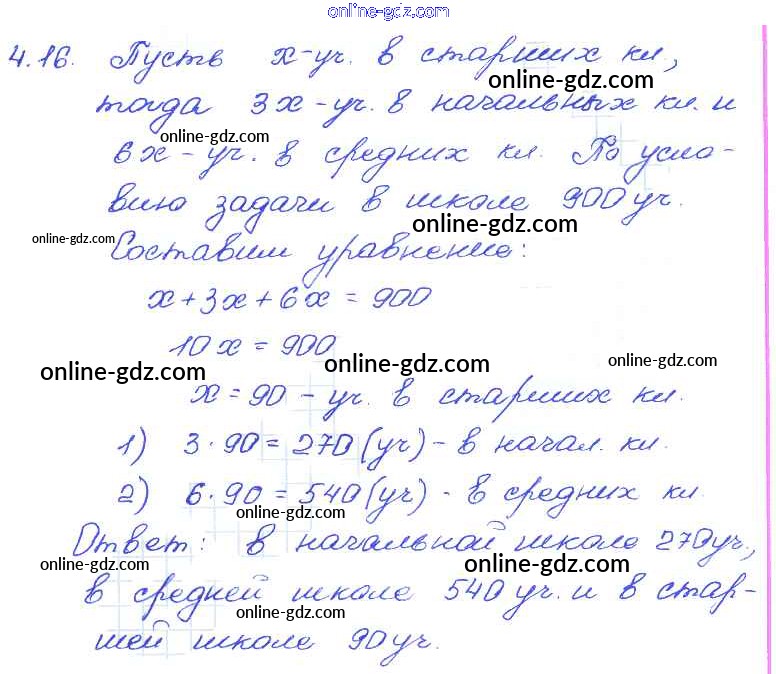 online-gdz.com
4.16. Пусть x-уч. в старших кл.,
online-gdz.com
тогда 3x-уч. в начальных кл. и
online-gdz.com
6x-уч. в средних кл. По усло-
вию задачи в школе 900 уч.
online-gdz.com
online-gdz.com
Составим уравнение:
x+3x+6x=900
10x=900
online-gdz.com online-gdz.com online-gdz.com
x=90 - уч. в старших кл.
1) 3·90=270(уч)-в начал. кл.
2) 6·90=540(уч)-в средних кл.
online-gdz.com
Ответ: в начальной школе 270уч.,
online-gdz.com online-gdz.com
в средней школе 540 уч. и в стар-
online-gdz.com
шей школе 90уч.